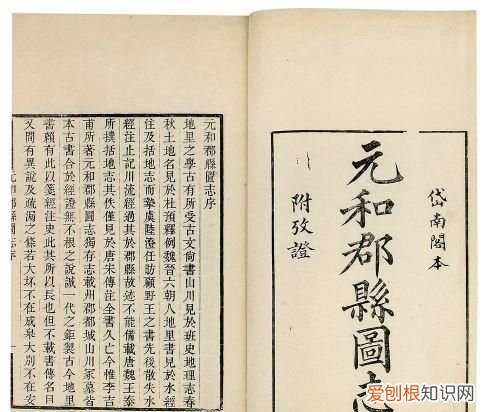 岱南閣本
元和郡縣圖志
附攷證
元和郡縣圖志序
地里之學古有所受古文尚書山川見於班史地理志春
秋土地名見於杜預釋例魏晉六朝人地里書見於水經
注及括地志而摯虞陸澄任昉顧野王之書先後散失水
經注止記川流經過其於郡縣故迹不能備載唐魏王泰
所撰括地志其佚僅見於唐宋傳注全書久亡今惟李吉
甫所著元和郡縣圖志獨存志載州郡都城山川冢墓皆
本古書合於經證無不根之說誠一代之鉅製古今地里
書賴有此以箋經注史此其所以長也但不載書傳名目
又間有異說及疏漏之條若大坯不在成皋大別不在安
元和郡縣圖志序
爱刨根知识网